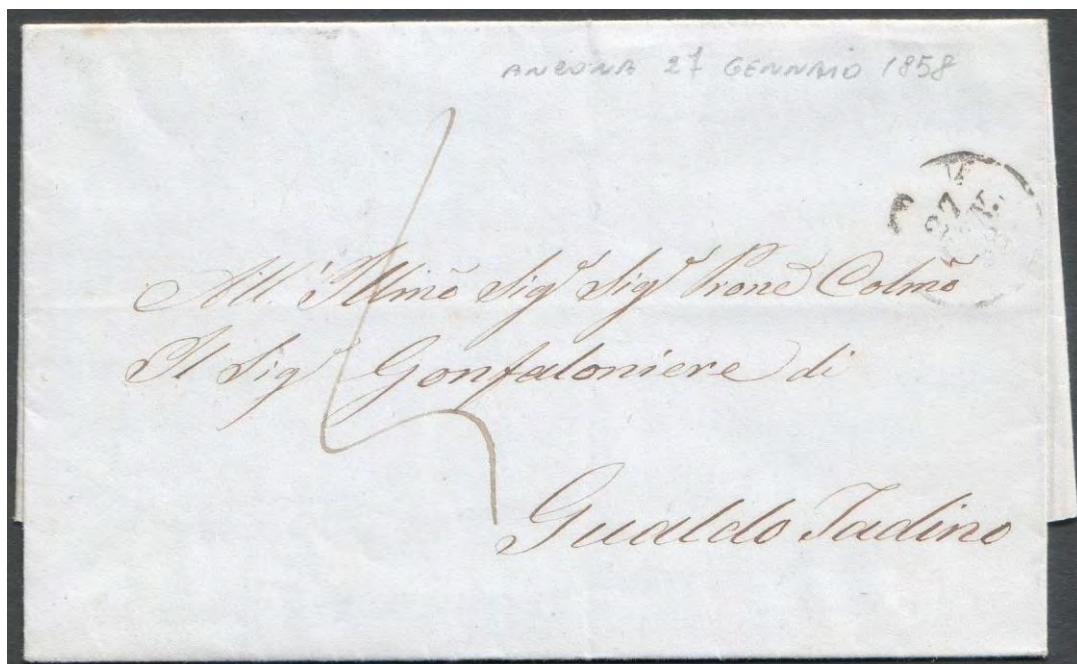 ANCONA 27 GENNAIO 1858
27
All' Illmo Sigr Sigr Prone Colmo
Il Sigr Gonfaloniere di
Gualdo Tadino